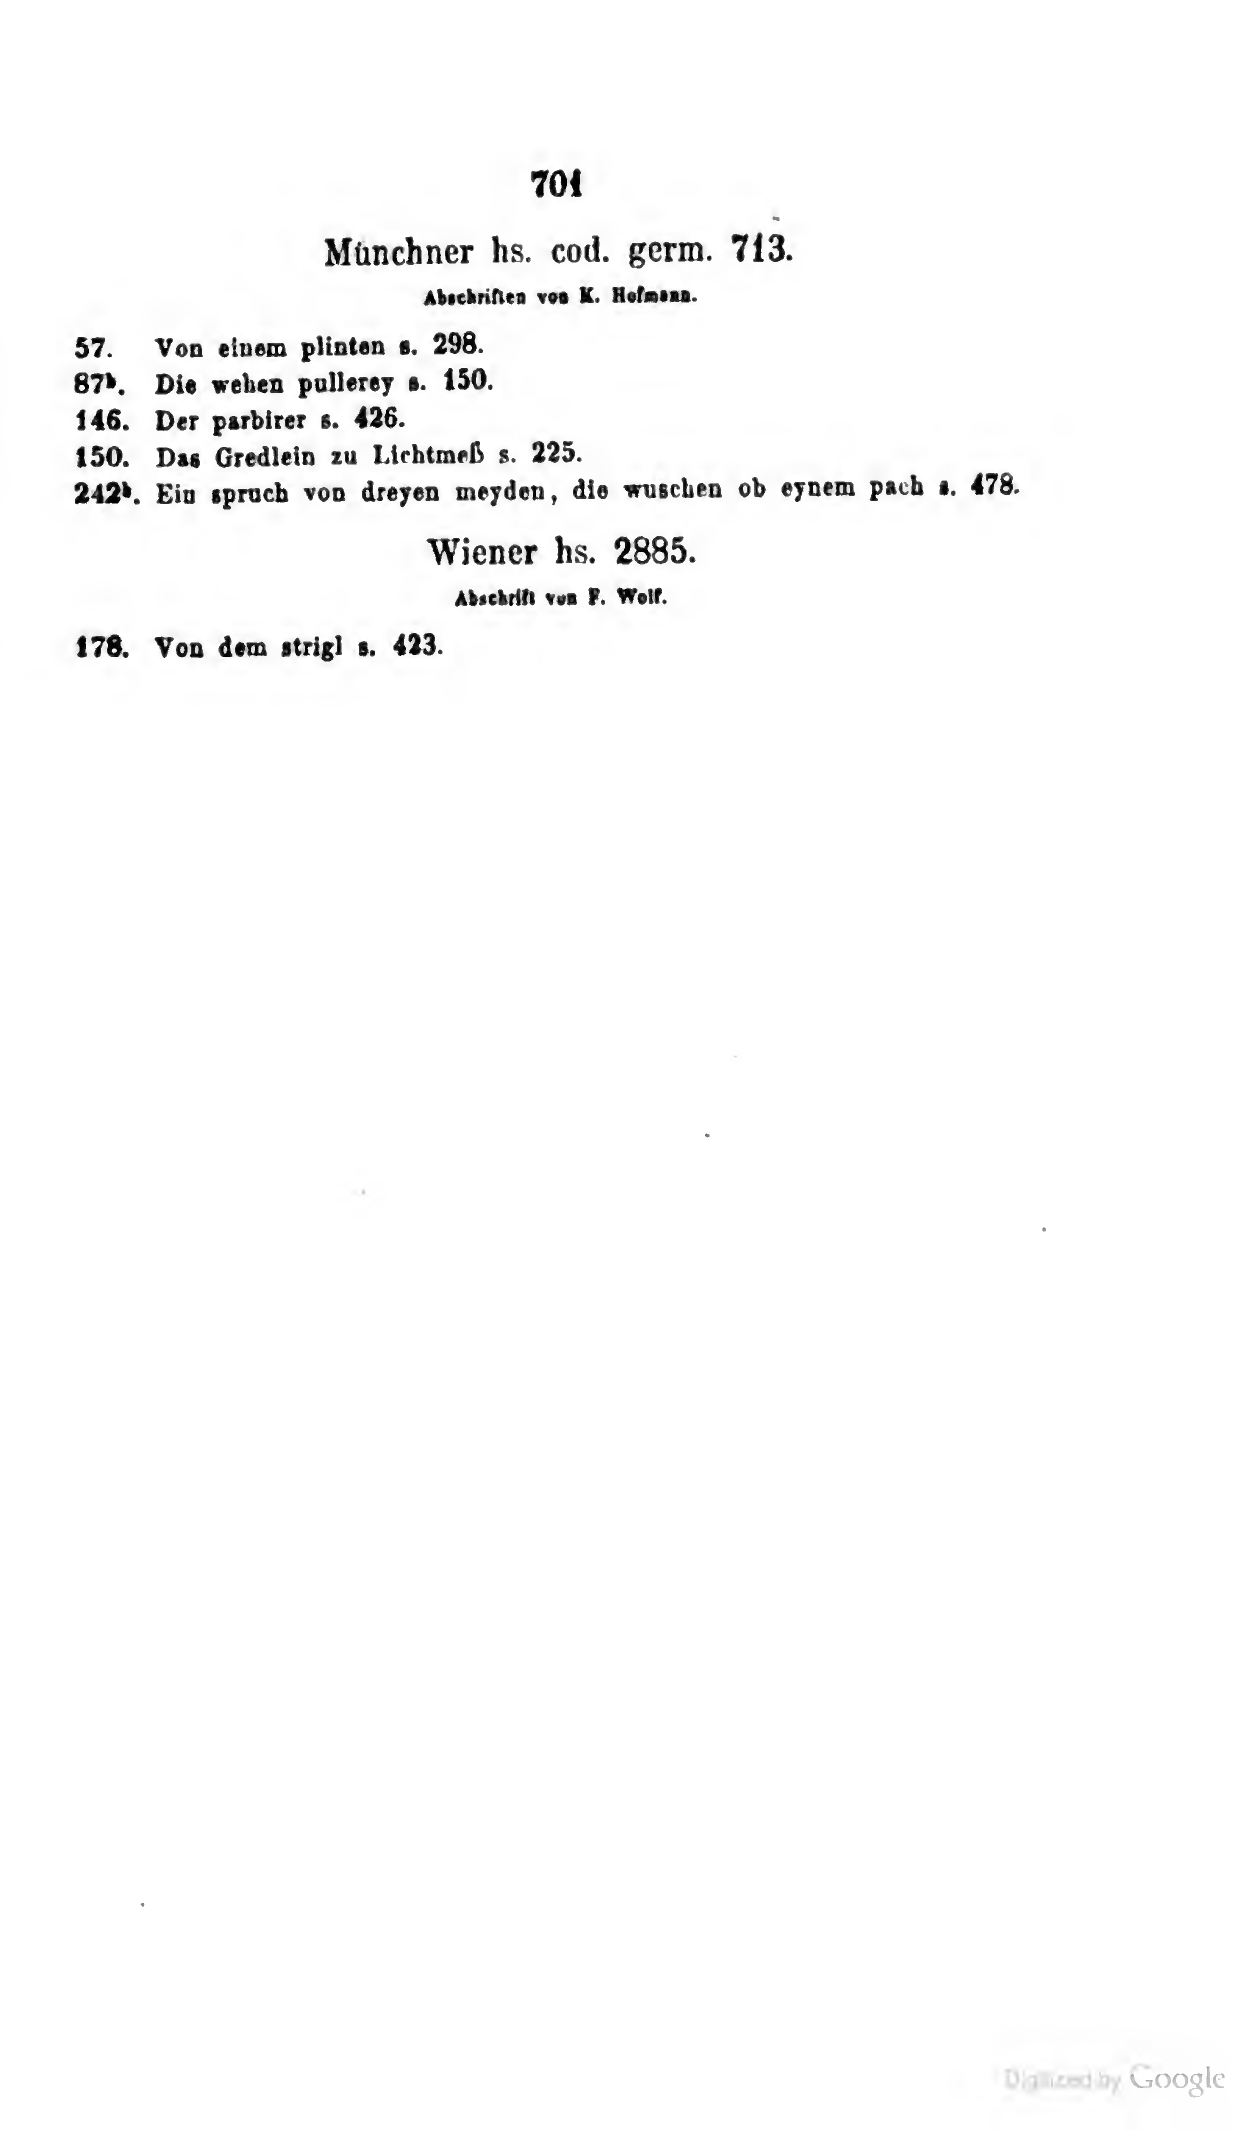 701
Münchner hs. cod. germ. 713.
Abschriften von K. Hofmann.
57. Von einem plinten s. 298.
87ᵇ. Die wehen pullerey s. 150.
146. Der parbirer s. 426.
150. Das Gredlein zu Lichtmeß s. 225.
242ᵇ. Ein spruch von dreyen meyden, die wuschen ob eynem pach s. 478.
Wiener hs. 2885.
Abschrift von F. Wolf.
178. Von dem strigl s. 423.
Digitized by Google